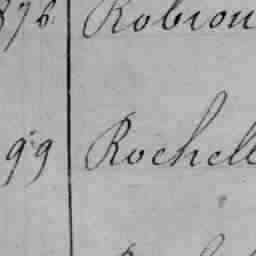 876. Robiou
99 Rochell